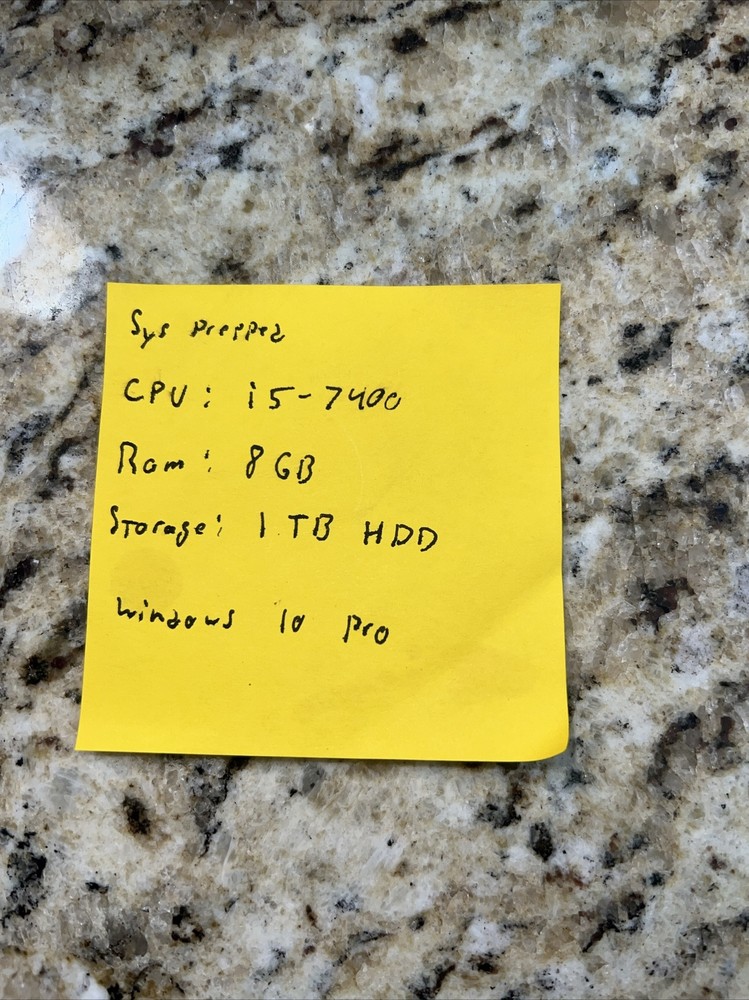 Sys Prepped
CPU: i5-7400
Ram: 8 GB
Storage: 1 TB HDD
Windows 10 Pro